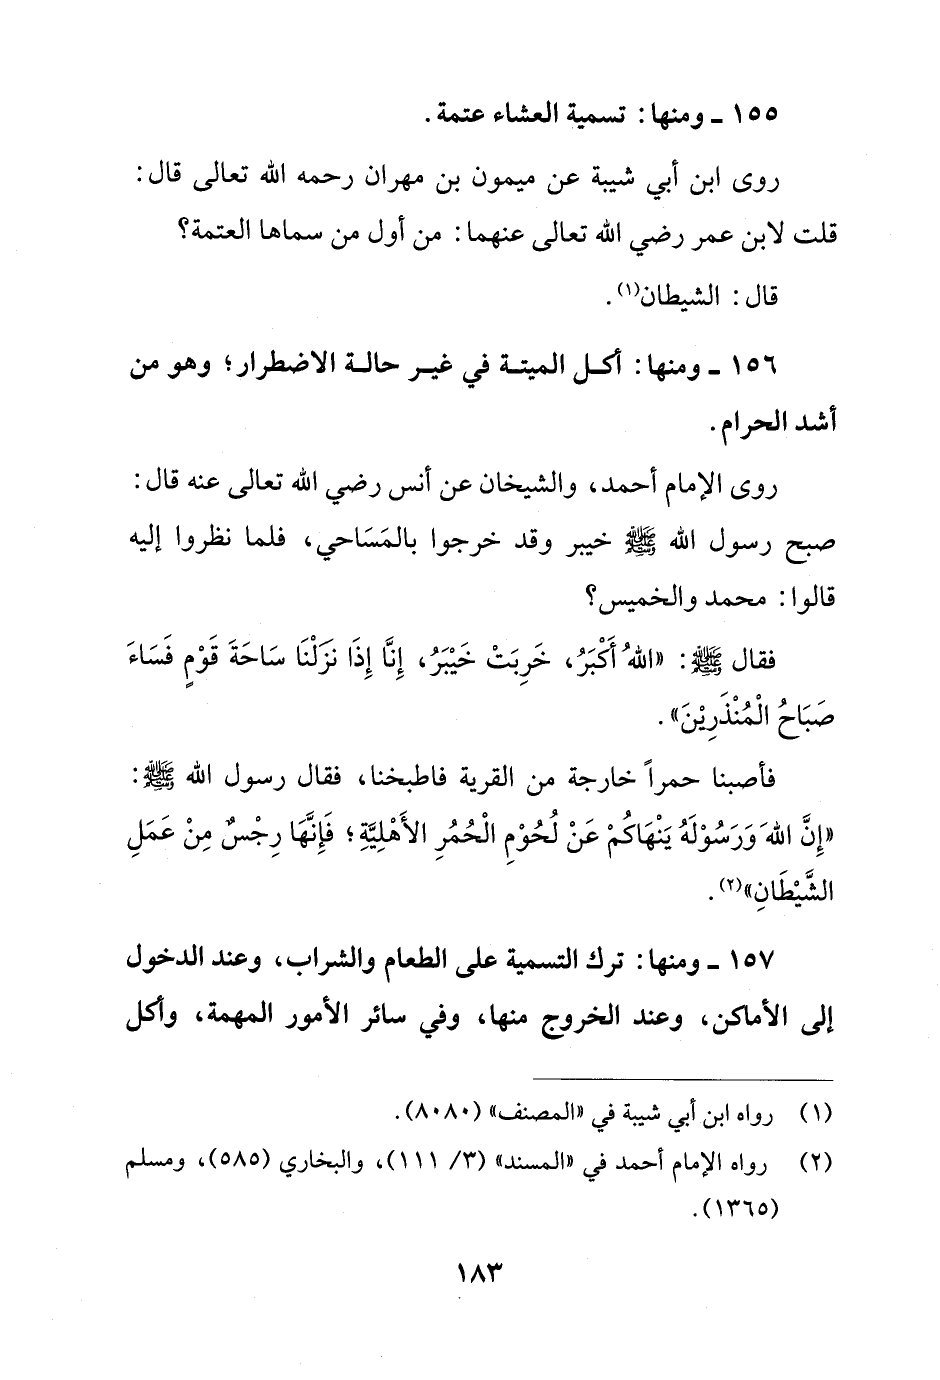 ١٥٥ ـ ومنها: تسمية العشاء عتمة.
روى ابن أبي شيبة عن ميمون بن مهران رحمه الله تعالى قال:
قلت لابن عمر رضي الله تعالى عنهما: من أول من سماها العتمة؟
قال: الشيطان(١).
١٥٦ ـ ومنها: أكل الميتة في غير حالة الاضطرار؛ وهو من
أشد الحرام.
روى الإمام أحمد، والشيخان عن أنس رضي الله تعالى عنه قال:
صبح رسول الله ﷺ خيبر وقد خرجوا بالمَسَاحي، فلما نظروا إليه
قالوا: محمد والخميس؟
فقال ﷺ: «اللهُ أَكْبَرُ، خَرِبَتْ خَيْبَرُ، إِنَّا إِذَا نَزَلْنَا سَاحَةَ قَوْمٍ فَسَاءَ
صَبَاحُ الْمُنْذَرِيْنَ».
فأصبنا حمراً خارجة من القرية فاطبخنا، فقال رسول الله ﷺ:
«إِنَّ اللهَ وَرَسُوْلَهُ يَنْهَاكُمْ عَنْ لُحُوْمِ الْحُمُرِ الأَهْلِيَّةِ؛ فَإِنَّهَا رِجْسٌ مِنْ عَمَلِ
الشَّيْطَانِ»(٢).
١٥٧ ـ ومنها: ترك التسمية على الطعام والشراب، وعند الدخول
إلى الأماكن، وعند الخروج منها، وفي سائر الأمور المهمة، وأكل
(١) رواه ابن أبي شيبة في «المصنف» (٨٠٨٠).
(٢) رواه الإمام أحمد في «المسند» (٣/ ١١١)، والبخاري (٥٨٥)، ومسلم
(١٣٦٥).
١٨٣